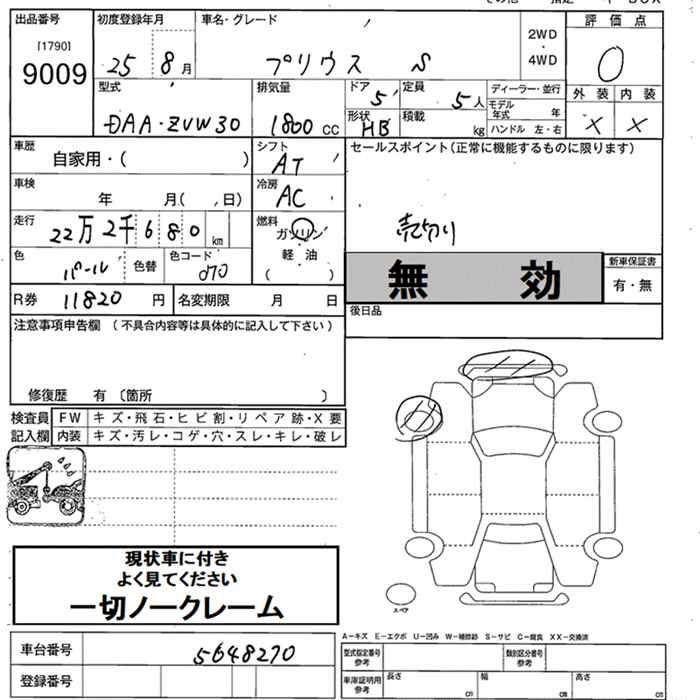 出品番号 初度登録年月 車名・グレード 評価点
[1790] 9009 25 8月 プリウス S 2WD・4WD 0
型式 排気量 ドア 定員 ディーラー・並行 外装 内装
DAA-ZVW30 1800cc 5 5人 モデル年式 年 X X
形状 HB 積載 kg ハンドル 左・右
車歴 自家用・( ) シフト AT セールスポイント(正常に機能するものに限ります)
車検 年 月( ,日) 冷房 AC
走行 22万2千680km 燃料 ガソリン・軽油( ) 売切り
色 パール 色替 色コード 070 無効 新車保証書 有・無
R券 11820円 名変期限 月 日 後日品
注意事項申告欄(不具合内容等は具体的に記入して下さい)
修復歴 有(箇所 )
検査員記入欄 FW キズ・飛石・ヒビ割・リペア跡・X要
内装 キズ・汚レ・コゲ・穴・スレ・キレ・破レ
現状車に付き
よく見てください
一切ノークレーム
スペア
A-キズ E-エクボ U-凹み W-補修跡 S-サビ C-腐食 XX-交換済
車台番号 5648270
登録番号
型式指定番号 参考 類別区分番号 参考
車庫証明用 参考 長さ cm 幅 cm 高さ cm